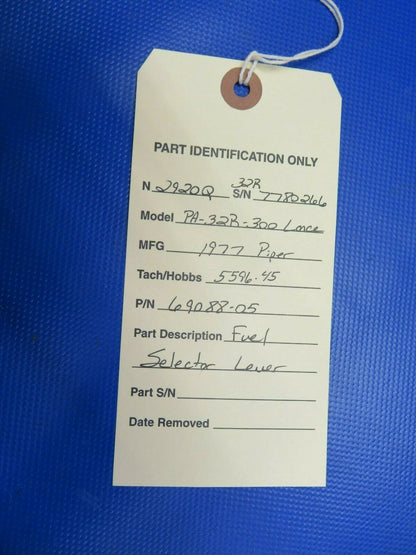 PART IDENTIFICATION ONLY
N 2920Q S/N 32R 7780266
Model PA-32R-300 Lance
MFG 1977 Piper
Tach/Hobbs 5596.45
P/N 69088-05
Part Description Fuel
Selector Lever
Part S/N
Date Removed